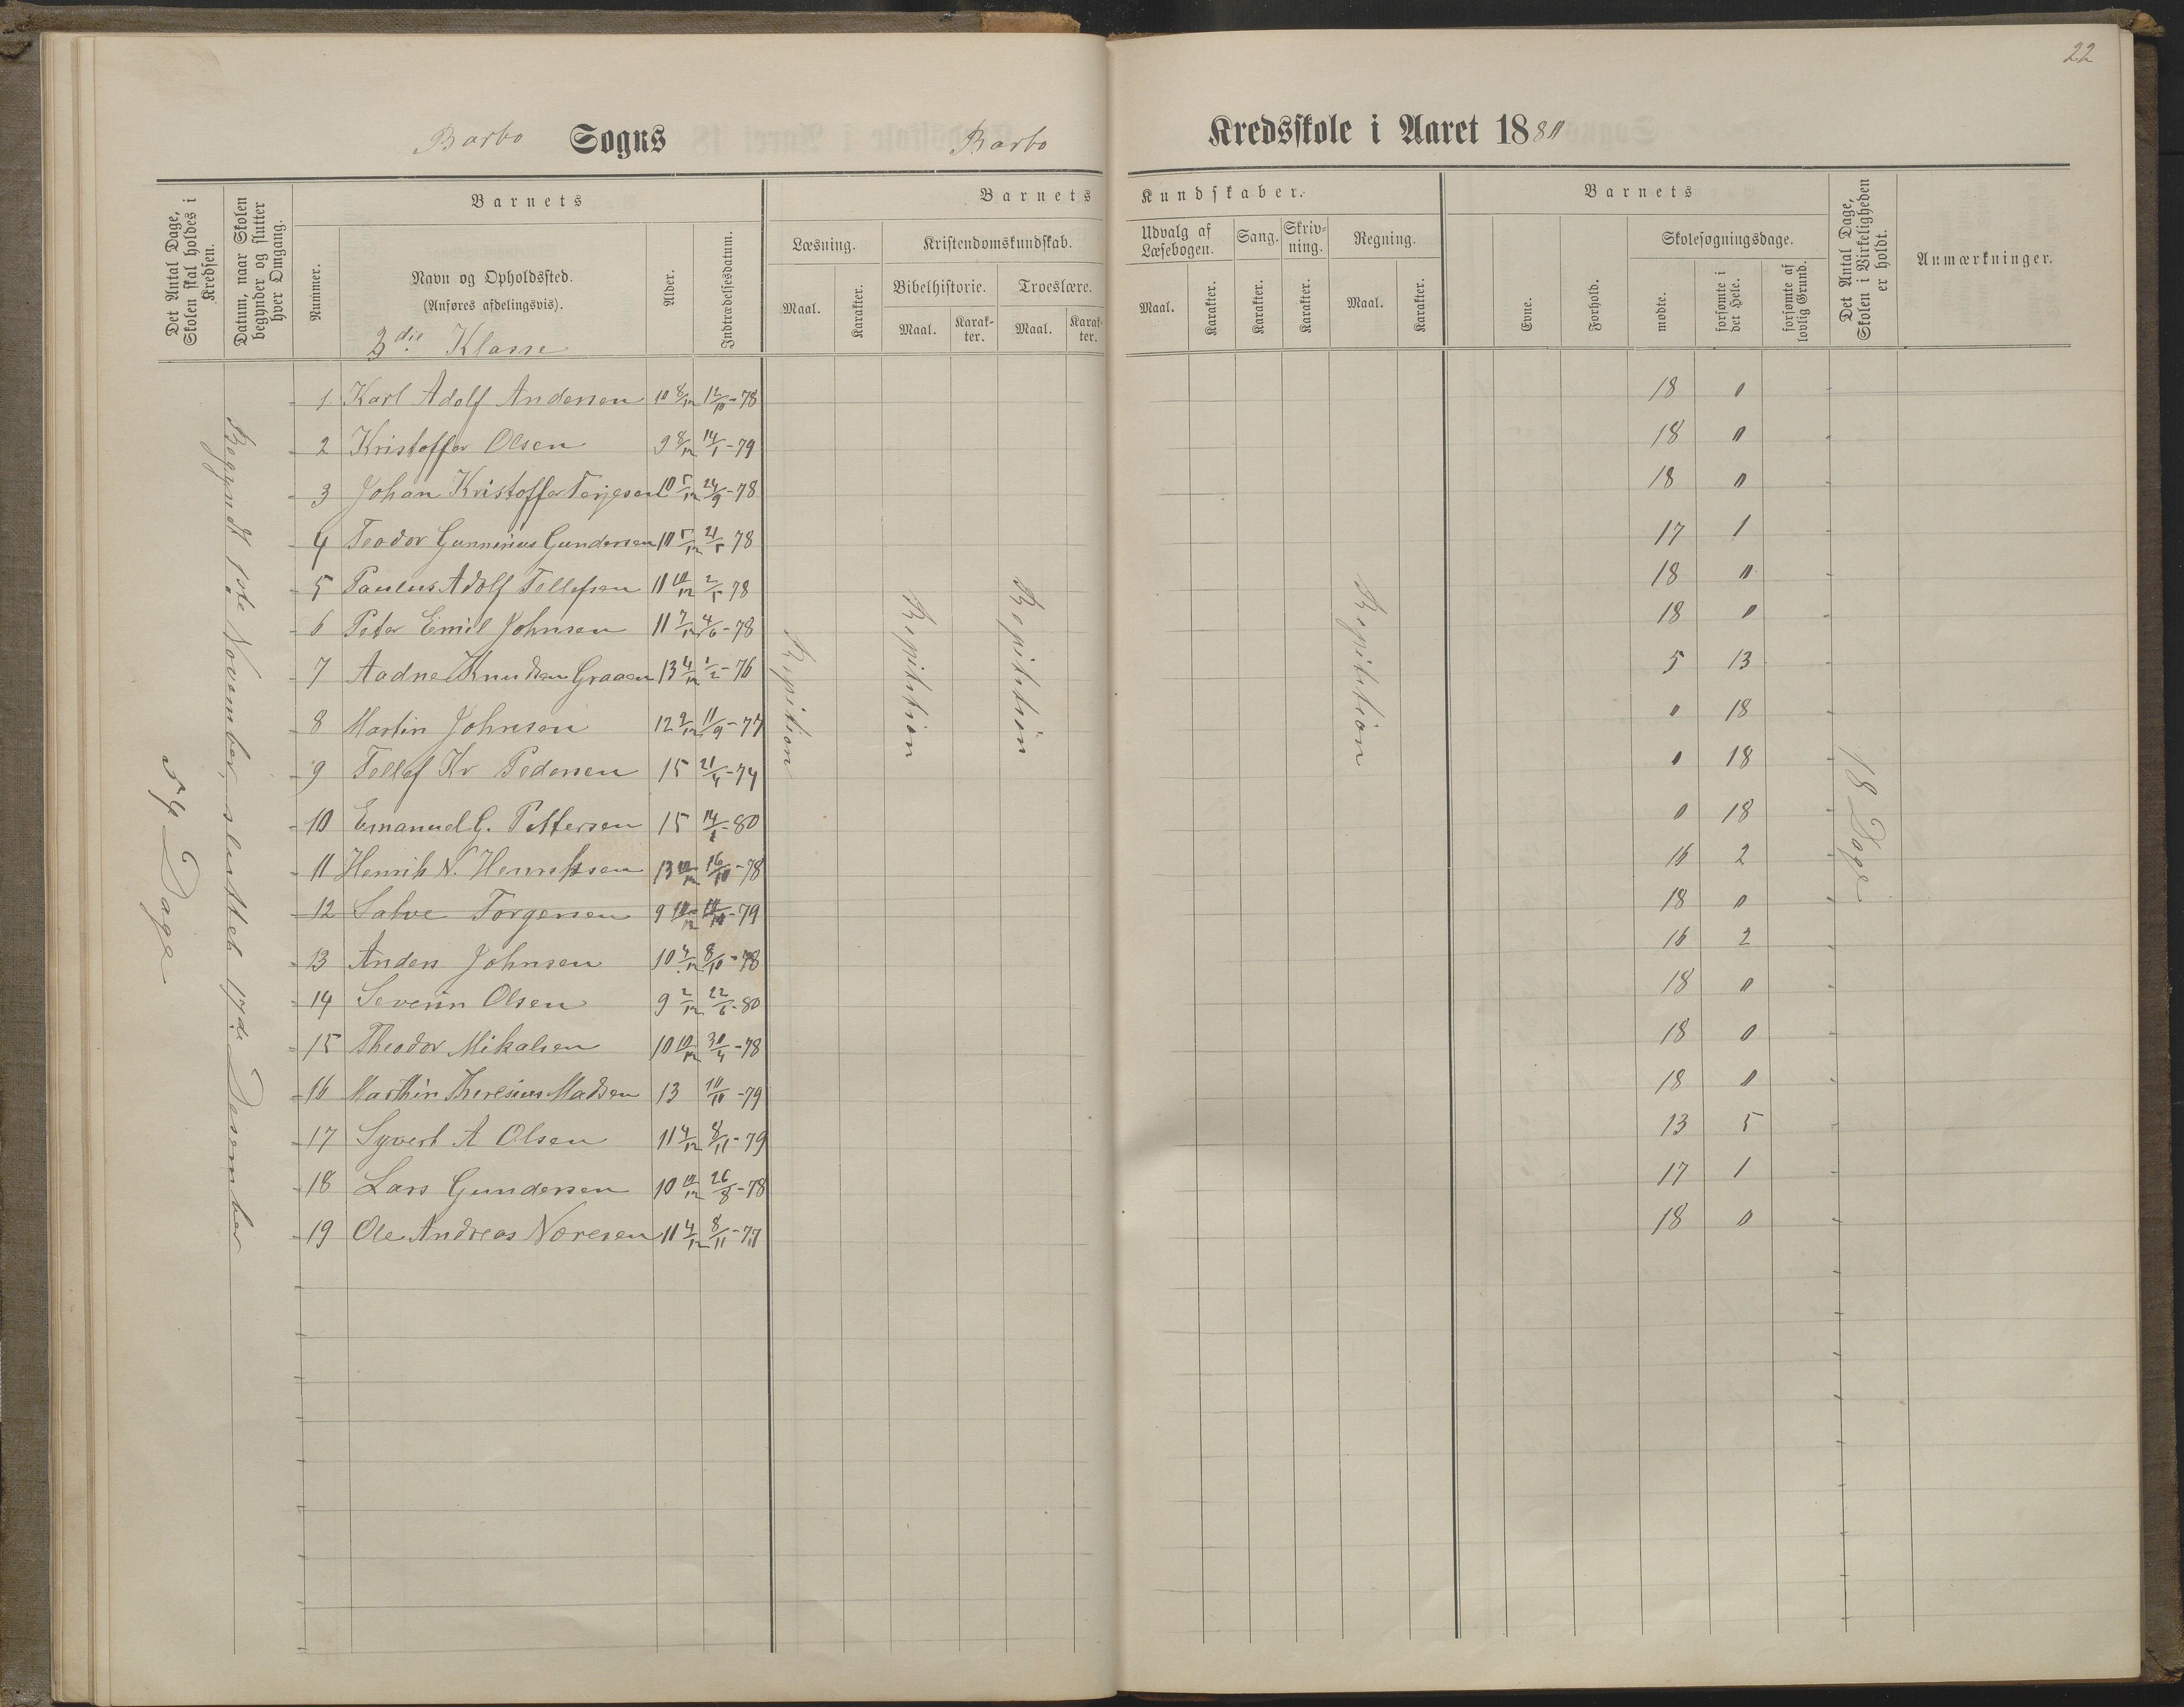 22
Barbo Sogns Barbo Kredsskole i Aaret 1880
Det Antal Dage, Skolen skal holdes i Kredsen.
Datum, naar Skolen begynder og slutter hver Omgang.
Barnets
Nummer.
Navn og Opholdssted.
(Anføres afdelingsvis).
3die Klasse
Alder.
Indtrædelsesdatum.
Barnets Kundskaber.
Læsning.
Maal.
Karakter.
Kristendomskundskab.
Bibelhistorie.
Maal.
Karakter.
Troeslære.
Maal.
Karakter.
Udvalg af Læsebogen.
Maal.
Karakter.
Sang.
Karakter.
Skrivning.
Karakter.
Regning.
Maal.
Karakter.
Barnets
Evne.
Forhold.
Skolesøgningsdage.
mødte.
forsømte i det Hele.
forsømte af lovlig Grund.
Det Antal Dage, Skolen i Virkeligheden er holdt.
Anmærkninger.
54 Dage
Begyndt 1ste November, sluttet 17de Desember
1 Karl Adolf Andersen 10 8/12 12/10-78 18 0
2 Kristoffer Olsen 9 8/12 14/1-79 18 0
3 Johan Kristoffer Terjesen 10 5/12 24/9-78 18 0
4 Teodor Gunninius Gundersen 10 5/12 21/5 78 17 1
5 Paulus Adolf Tellefsen 11 10/12 2/5-78 18 0
6 Peter Emil Johnsen 11 7/12 4/6-78 18 0
7 Aadne Knudsen Graaen 13 4/12 1/2-76 5 13
8 Martin Johnsen 12 9/12 11/9-77 0 18
9 Tellef Kr Pedersen 15 21/4-74 0 18
10 Emanuel G. Pettersen 15 14/1-80 0 18
11 Henrik N. Henriksen 13 10/12 16/10-78 16 2
12 Salve Torgersen 9 10/12 -79 18 0
13 Anders Johnsen 10 4/12 8/10-78 16 2
14 Severin Olsen 9 2/12 22/6-80 18 0
15 Theodor Mikalsen 10 10/12 30/4-78 18 0
16 Marthin Theresius Madsen 13 10/10-79 18 0
17 Syvert A Olsen 11 4/12 8/11-79 13 5
18 Lars Gundersen 10 10/12 26/8-78 17 1
19 Ole Andreas Noresen 11 4/12 8/11-77 18 0
Repition
Repitition
Repitition
Repitition
18 Dage